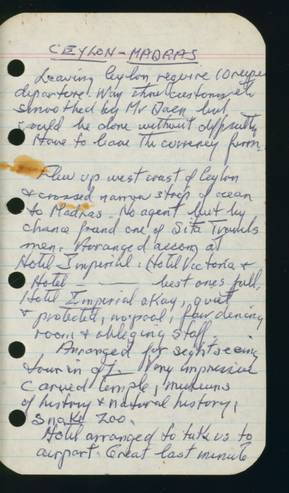 CEYLON-MADRAS
Leaving Ceylon, require 10 rupee
departure. Way thru customs
smoothed by Mr Daen but
could be done without difficulty
Have to have the currency form.
Flew up west coast of Ceylon
& crossed narrow strip of ocean
to Madras. No agent but by
chance found one of Sita Travels
man. Arranged accom. at
Hotel Imperial. Hotel Victoria &
Hotel best ones full,
Hotel Imperial okay, quiet
& protected, no pool, fair dining
room & obliging staff.
Arranged for sightseeing
tour in . Very impressive
carved temple, museums
of history & natural history,
Snake Zoo.
Hotel arranged to take us to
airport. Great last minute